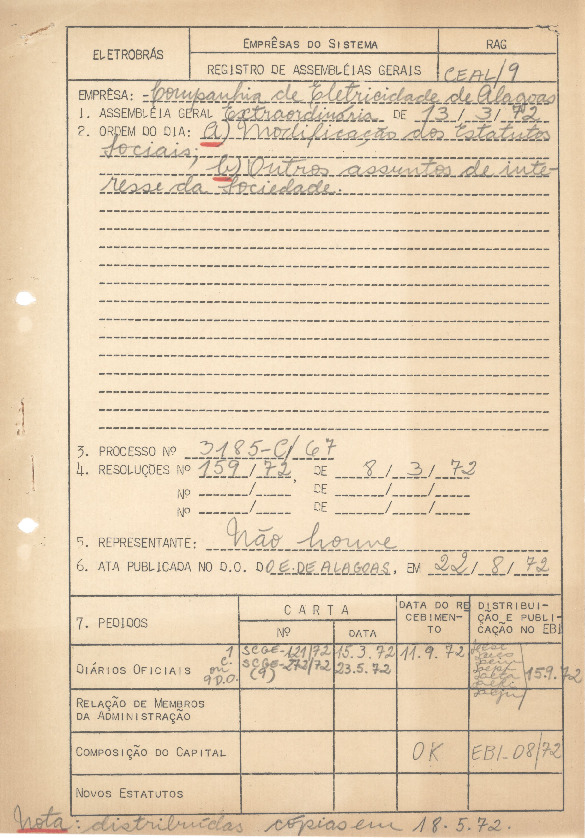 ELETROBRÁS
EMPRÊSAS DO SISTEMA
RAG
REGISTRO DE ASSEMBLÉIAS GERAIS
CEAL/9
EMPRÊSA: Companhia de Eletricidade de Alagoas
1. ASSEMBLÉIA GERAL Extraordinária DE 13/3/72
2. ORDEM DO DIA: a) Modificação dos Estatutos
Sociais; b) Outros assuntos de inte-
resse da Sociedade.
3. PROCESSO Nº 3185-C/67
4. RESOLUÇÕES Nº 159/72, DE 8/3/72
Nº / DE / /
Nº / DE / /
5. REPRESENTANTE: Não houve
6. ATA PUBLICADA NO D.O. DO E. DE ALAGOAS, EM 22/8/72
7. PEDIDOS
CARTA
Nº
DATA
DATA DO RE
CEBIMEN-
TO
DISTRIBUI-
ÇÃO E PUBLI-
CAÇÃO NO EBI
DIÁRIOS OFICIAIS
SCGE-121/72 15.3.72 11.9.72
SCGE-272/72 23.5.72
(9)
15.9.72
RELAÇÃO DE MEMBROS
DA ADMINISTRAÇÃO
COMPOSIÇÃO DO CAPITAL OK EBI-08/72
NOVOS ESTATUTOS
Nota: distribuídas cópias em 18.5.72.